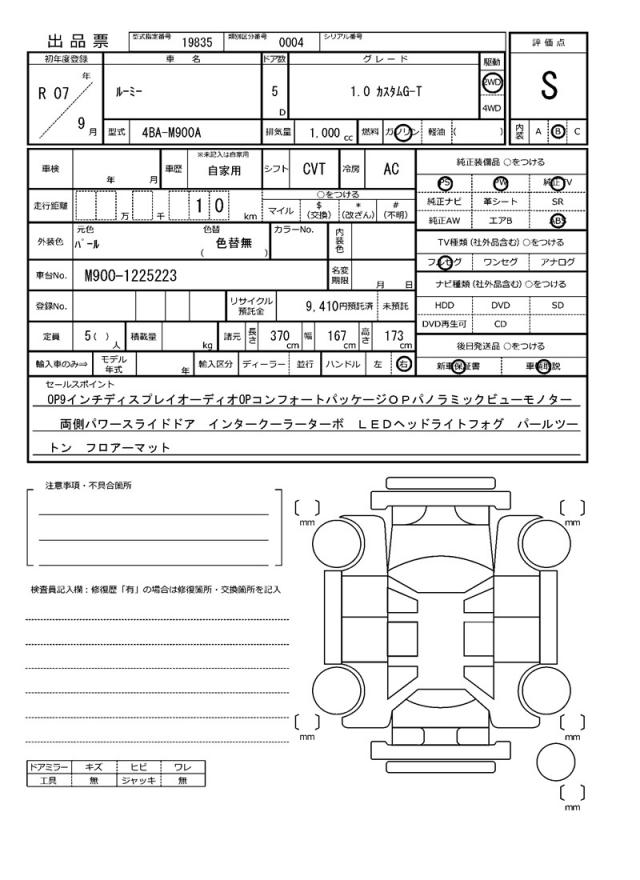 出品票 型式指定番号 19835 類別区分番号 0004 シリアル番号
評価点
S
初年度登録 車名 ドア数 グレード 駆動
R 07 年 9 月 ルーミー 5 D 1.0 カスタムG-T 2WD
4WD
型式 4BA-M900A 排気量 1.000 cc 燃料 ガソリン 軽油 ( ) 内装 A B C
車検 年 月 車歴 ※未記入は自家用 自家用 シフト CVT 冷房 AC
純正装備品 ○をつける
PS PW 純正TV
純正ナビ 革シート SR
純正AW エアB ABS
走行距離 万 千 1 0 km
○をつける
マイル $(交換) *(改ざん) #(不明)
外装色 元色 パール 色替 色替無 ( ) カラーNo. 内装色
TV種類(社外品含む)○をつける
フルセグ ワンセグ アナログ
車台No. M900-1225223 名変期限 月 日
ナビ種類(社外品含む)○をつける
HDD DVD SD
DVD再生可 CD
登録No. リサイクル預託金 9,410円預託済 未預託
定員 5( ) 人 積載量 kg 諸元 長さ 370 cm 幅 167 cm 高さ 173 cm
後日発送品 ○をつける
新車保証書 車輌取説
輸入車のみ⇒ モデル年式 年 輸入区分 ディーラー 並行 ハンドル 左 右
セールスポイント
OP9インチディスプレイオーディオOPコンフォートパッケージOPパノラミックビューモノター
両側パワースライドドア インタークーラーターボ LEDヘッドライトフォグ パールツー
トン フロアーマット
注意事項・不具合箇所
mm
mm
検査員記入欄:修復歴「有」の場合は修復箇所・交換箇所を記入
mm
mm
mm
ドアミラー キズ ヒビ ワレ
工具 無 ジャッキ 無